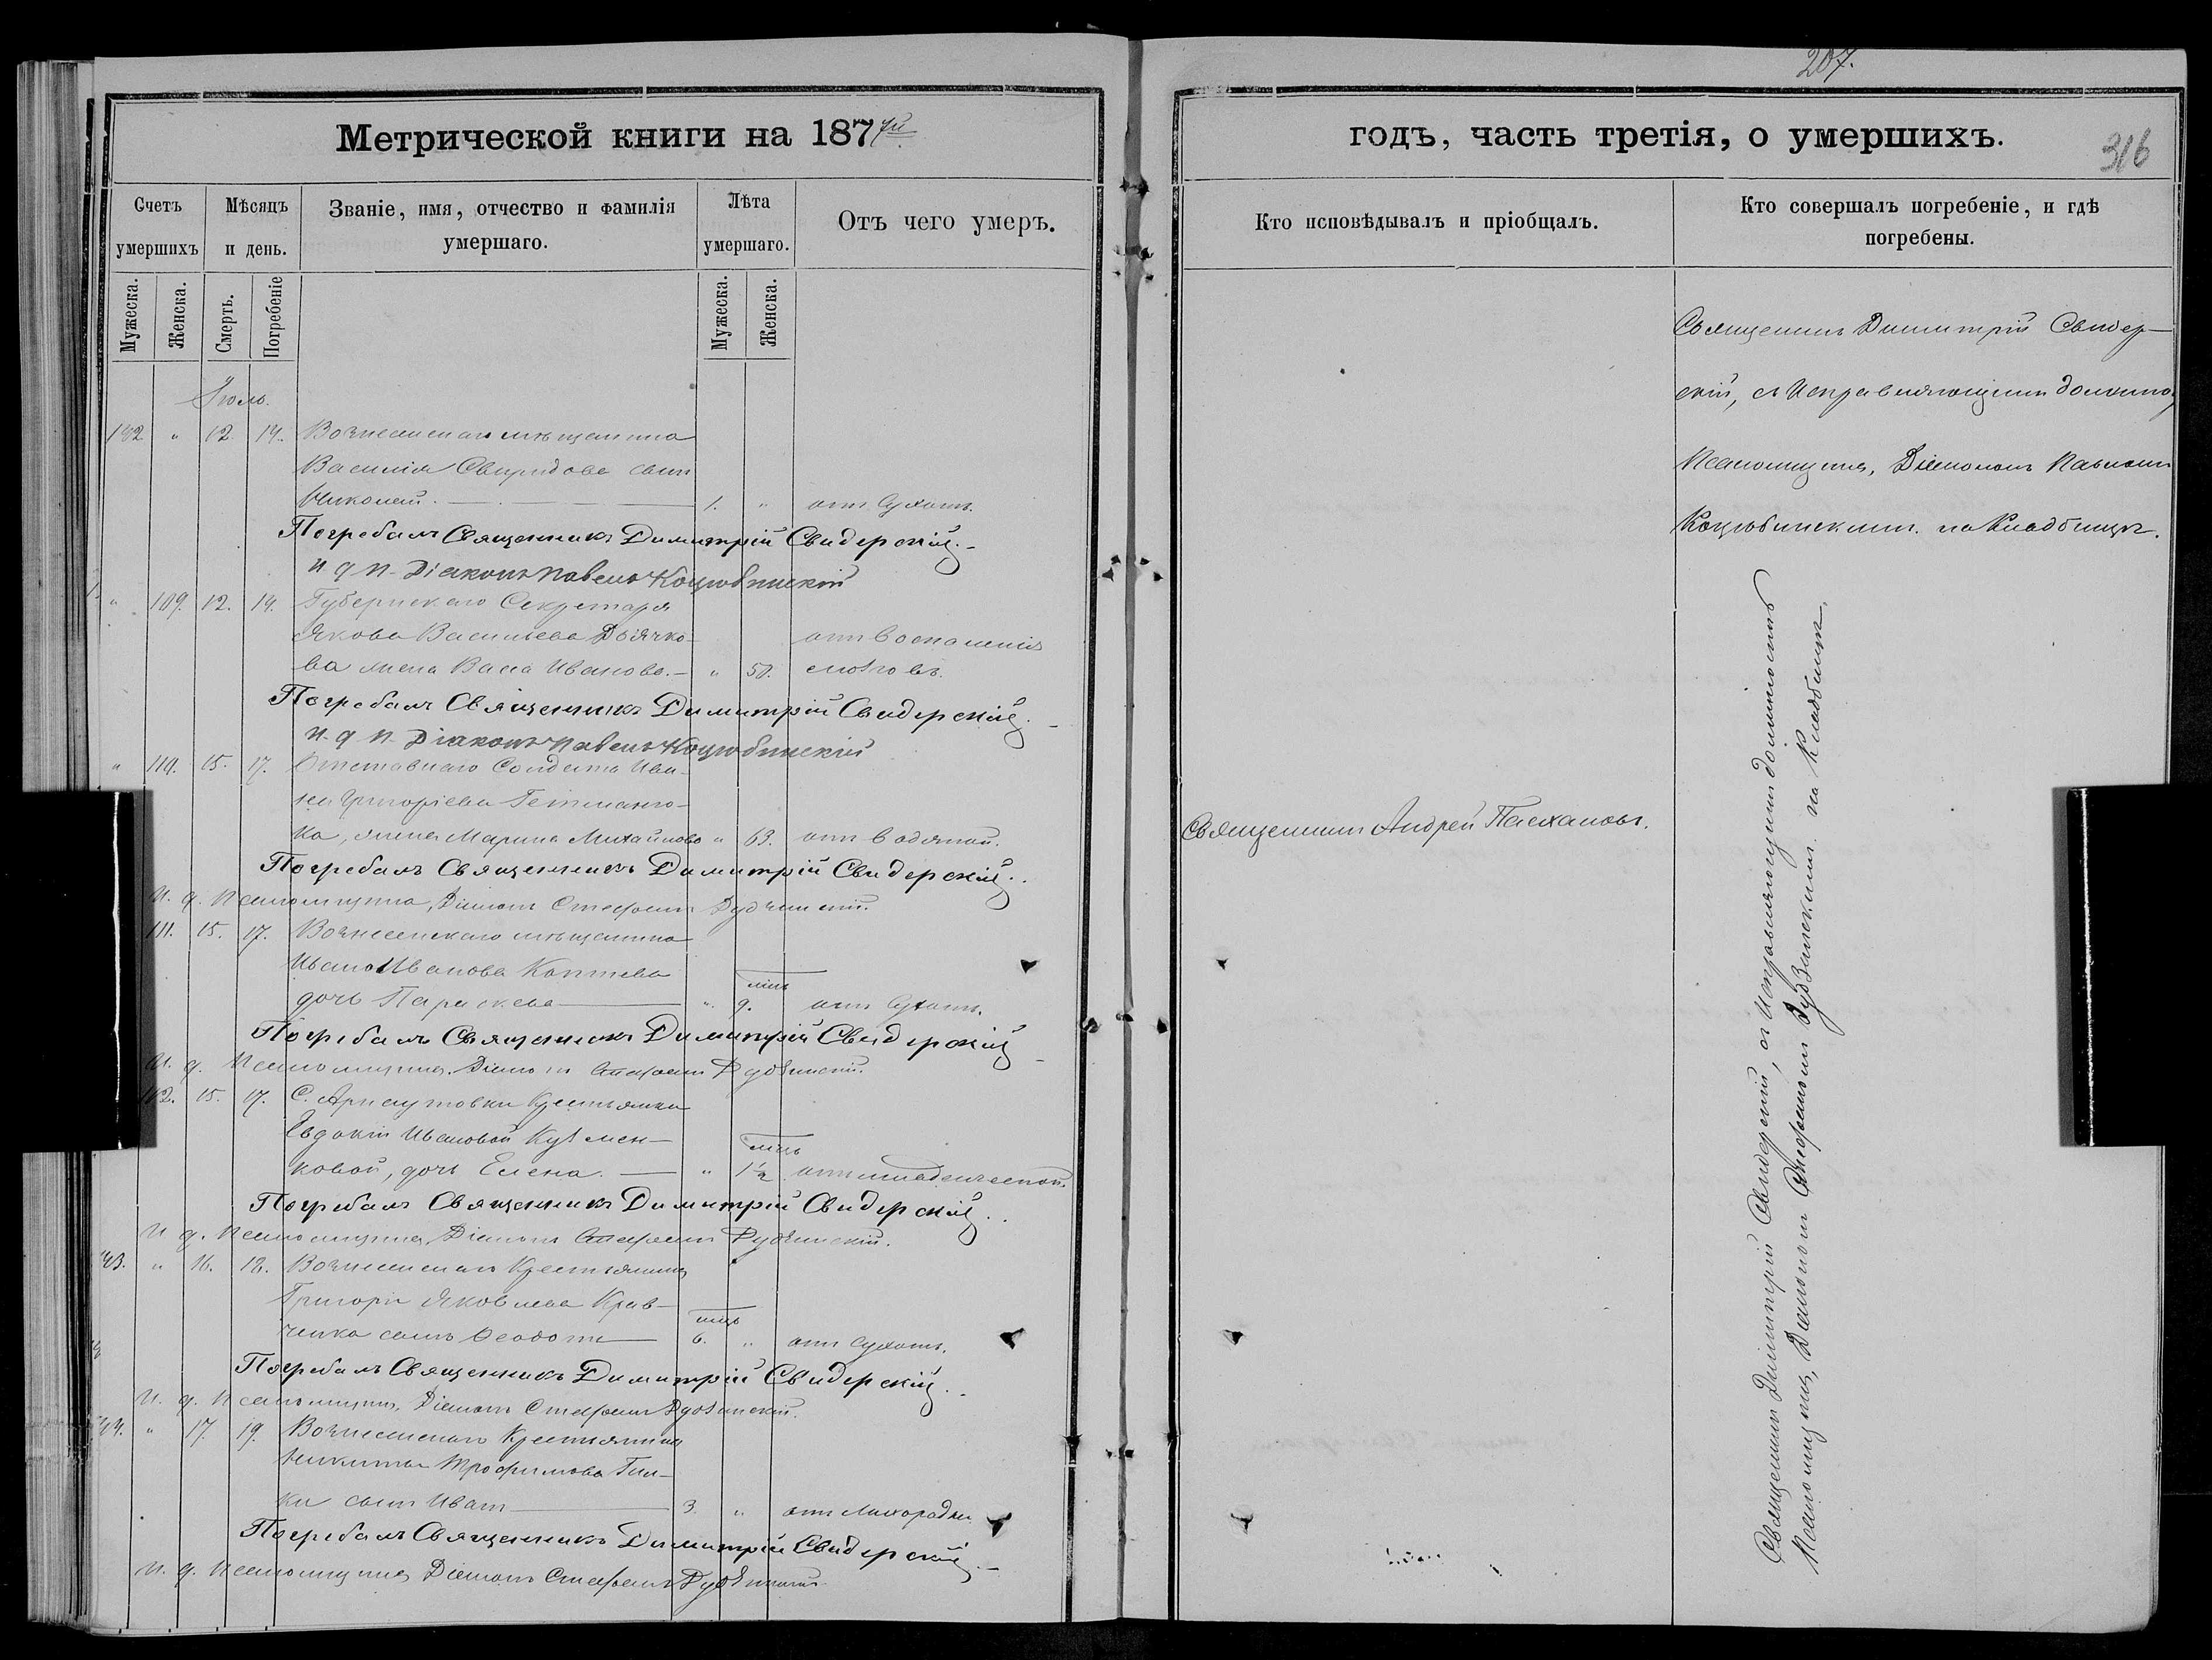 207.
316
Метрической книги на 1877й
годъ, часть третія, о умершихъ.
Счетъ умершихъ
Мѣсяцъ и день.
Званіе, имя, отчество и фамилія умершаго.
Лѣта умершаго.
Отъ чего умеръ.
Кто исповѣдывалъ и пріобщалъ.
Кто совершалъ погребеніе, и гдѣ погребены.
Мужеска.
Женска.
Смерть.
Погребеніе
Мужеска.
Женска.
Іюль.
142 " 12. 14. Вознесенскаго мѣщанина
Василія Свиридова сынъ
Николай. 1. " отъ Сухотъ.
Погребалъ Священникъ Димитрій Свидерскій.
и д п Діаконъ Павелъ Коцюбинскій
" 109. 12. 14. Губернскаго Секретаря
Якова Васильева Дьячко-
ва жена Васса Иванова. " 50. отъ воспаленія
мозговъ.
Погребалъ Священникъ Димитрій Свидерскій.
и д п Діаконъ Павелъ Коцюбинскій
" 110. 15. 17. Отставнаго Солдата Ива-
на Григоріева Гетманчо-
ка, жена Марина Михайлова " 63. отъ водяной.
Погребалъ Священникъ Димитрій Свидерскій.
И. д. Псаломщика, Діаконъ Стефанъ
111. 15. 17. Вознесенскаго мѣщанина
Ивана Иванова Коптева
дочь Параскева " 9. отъ Сухотъ.
Погребалъ Священникъ Димитрій Свидерскій
И. д. Псаломщика. Діаконъ Стефанъ
112. 15. 17. С. Арнаутовки Крестьянки
Евдокіи Ивановой Кузмен-
ковой, дочь Елена. " 1½ отъ младенческой.
Погребалъ Священникъ Димитрій Свидерскій.
И. д. Псаломщика, Діаконъ Стефанъ
143. " 16. 18. Вознесенскаго Крестьянина
Григорія Яковлева Крав-
ченка сынъ Ѳеодотъ 6. " отъ Сухотъ.
Погребалъ Священникъ Димитрій Свидерскій.
И. д. Псаломщика, Діаконъ Стефанъ
144. " 17. 19. Вознесенскаго Крестьянина
Никиты Трофимова
сынъ Иванъ 3. " отъ Лихорадки
Погребалъ Священникъ Димитрій Свидерскій.
И. д. Псаломщика Діаконъ Стефанъ
Священникъ Андрей Пасхаловъ.
Священникъ Димитрій Свидер-
скій, съ Исправляющимъ должно.
Псаломщика, Діакономъ Павломъ
Коцюбинскимъ. на Кладбищѣ.
Священникъ Димитрій Свидерскій, съ Исправляющимъ должность
Псаломщика, Діакономъ Стефаномъ на Кладбищѣ.